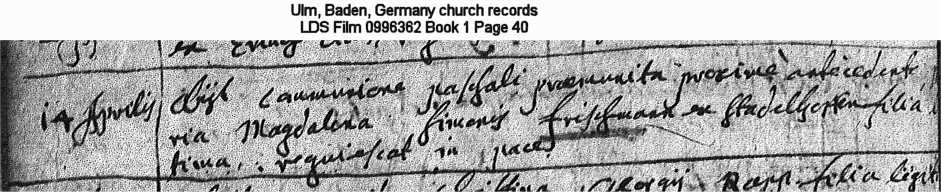 Ulm, Baden, Germany church records
LDS Film 0996362 Book 1 Page 40
14 Aprilis obijt communione paschali praemunita proxime antecedente
ria Magdalena Simonis Frischmann ex Stadelhoffen filia
tima. requiescat in pace
Georgij Rapp filia legit